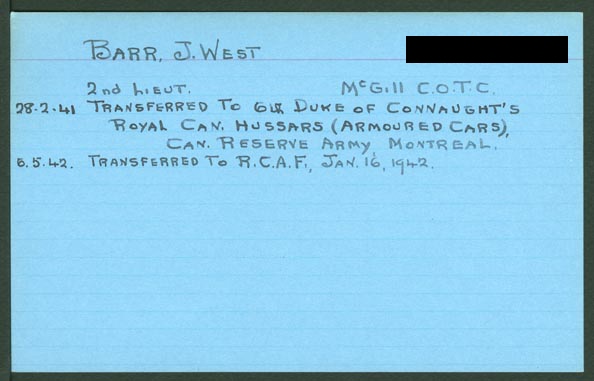 BARR, J. WEST
2nd LIEUT. McGill C.O.T.C.
28-2-41 TRANSFERRED TO 6th DUKE OF CONNAUGHT'S
ROYAL CAN. HUSSARS (ARMOURED CARS),
CAN. RESERVE ARMY, MONTREAL.
5.5.42. TRANSFERRED TO R.C.A.F., JAN. 16, 1942.